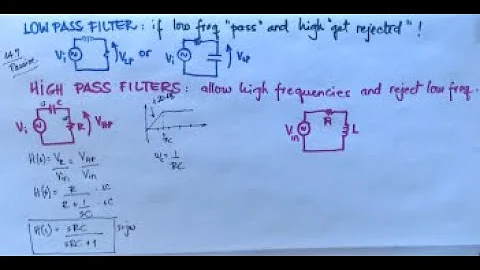 LOW PASS FILTER: if low freq "pass" and high "get rejected"!
Vi VLP or Vi VLP
HIGH PASS FILTERS: allow high frequencies and reject low freq.
C
Vi R VHP
Vin R L
H(s) = VR/Vin = VHP/Vin
ωc = 1/RC
H(s) = R/(R + 1/sC) · sC/sC
H(s) = sRC/(sRC + 1)